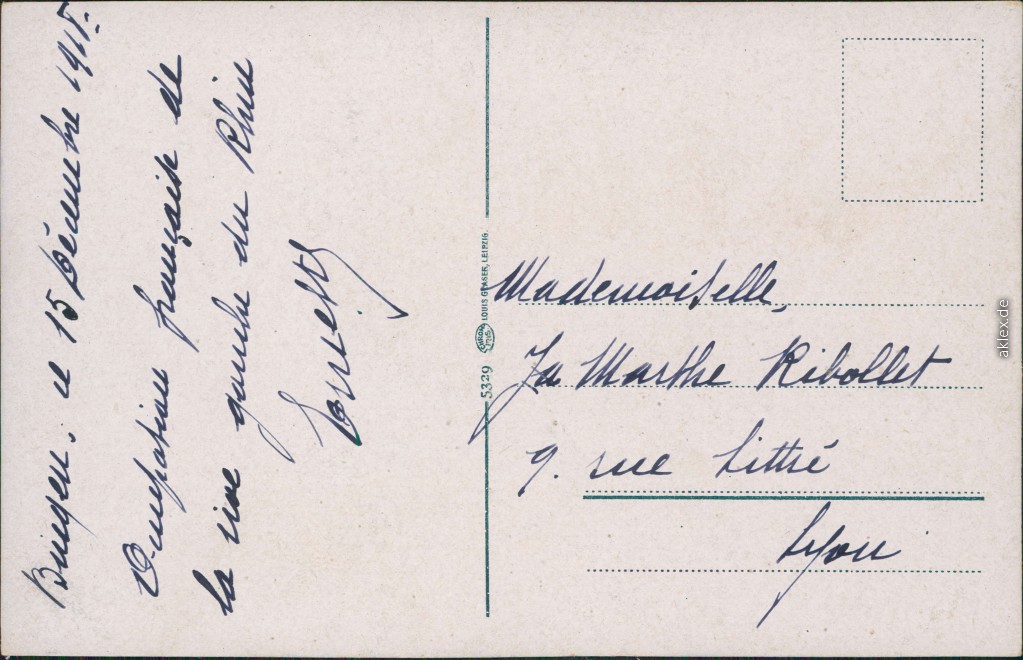 Bingen. le 15 Décembre 1918.
Occupation française de
la rive gauche du Rhin
Mademoiselle,
Marthe Ribollet
9. rue Littré
Lyon
5329
CHROMO
LOUIS GLASER, LEIPZIG.
aklex.de